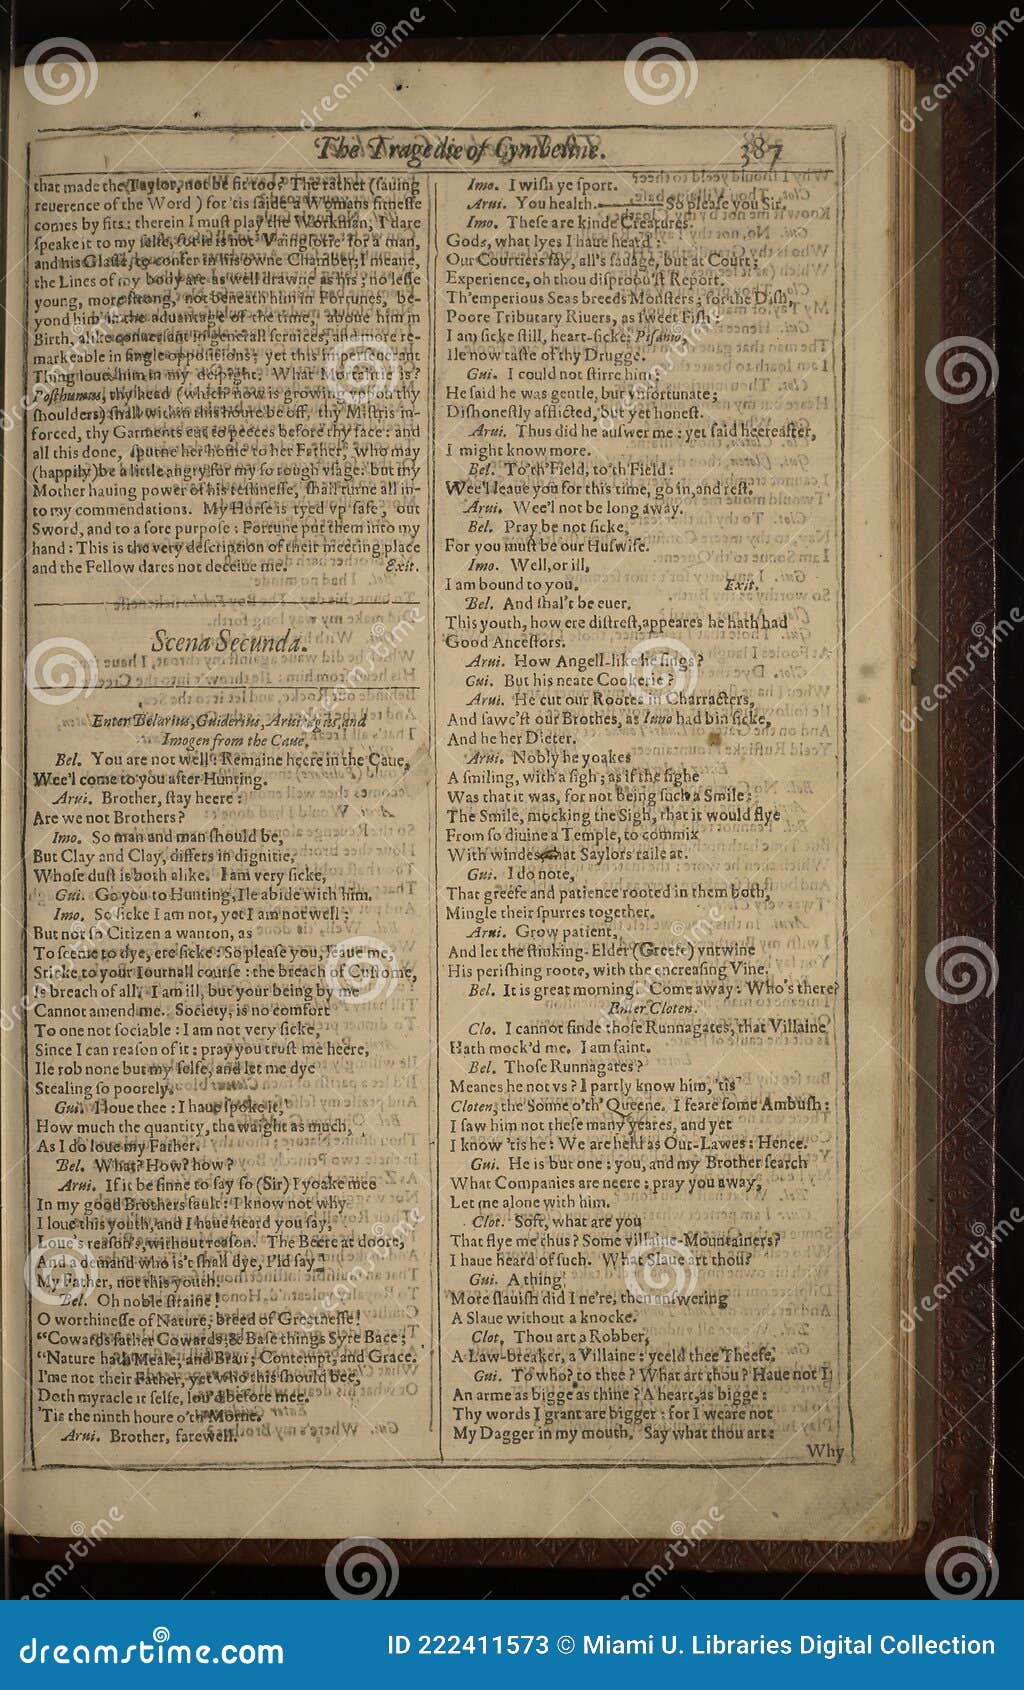 The Tragedie of Cymbeline. 387
that made the Taylor, not be fit too? The rather (sauing
reuerence of the Word) for 'tis saide a Womans fitnesse
comes by fits: therein I must play the Workman, I dare
speake it to my selfe, for it is not Vainglorie for a man,
and his Glasse, to confer in his owne Chamber; I meane,
the Lines of my body are as well drawne as his; no lesse
young, more strong, not beneath him in Fortunes, be-
yond him in the aduantage of the time, aboue him in
Birth, alike conuersant in generall seruices, and more re-
markeable in single oppositions; yet this imperseuerant
Thing loues him in my despight. What Mortalitie is?
Posthumus, thy head (which now is growing vppon thy
shoulders) shall within this houre be off, thy Mistris in-
forced, thy Garments cut to peeces before thy face: and
all this done, spurne her home to her Father, who may
(happily) be a little angry for my so rough vsage: but my
Mother hauing power of his testinesse, shall turne all in-
to my commendations. My Horse is tyed vp safe, out
Sword, and to a sore purpose: Fortune put them into my
hand: This is the very description of their meeting place
and the Fellow dares not deceiue me. Exit.
Scena Secunda.
Enter Belarius, Guiderius, Aruiragus, and
Imogen from the Caue.
Bel. You are not well: Remaine heere in the Caue,
Wee'l come to you after Hunting.
Arui. Brother, stay heere:
Are we not Brothers?
Imo. So man and man should be,
But Clay and Clay, differs in dignitie,
Whose dust is both alike. I am very sicke,
Gui. Go you to Hunting, Ile abide with him.
Imo. So sicke I am not, yet I am not well:
But not so Citizen a wanton, as
To seeme to dye, ere sicke: So please you, leaue me,
Sticke to your Iournall course: the breach of Custome,
Is breach of all. I am ill, but your being by me
Cannot amend me. Society, is no comfort
To one not sociable: I am not very sicke,
Since I can reason of it: pray you trust me heere,
Ile rob none but my selfe, and let me dye
Stealing so poorely.
Gui. I loue thee: I haue spoke it,
How much the quantity, the waight as much,
As I do loue my Father.
Bel. What? How? how?
Arui. If it be sinne to say so (Sir) I yoake mee
In my good Brothers fault: I know not why
I loue this youth, and I haue heard you say,
Loue's reason's, without reason. The Beere at doore,
And a demand who is't shall dye, I'ld say
My Father, not this youth.
Bel. Oh noble straine!
O worthinesse of Nature, breed of Greatnesse!
"Cowards father Cowards, & Base things Syre Bace;
"Nature hath Meale, and Bran; Contempt, and Grace.
I'me not their Father, yet who this should bee,
Doth myracle it selfe, lou'd before mee.
'Tis the ninth houre o'th'Morne.
Arui. Brother, farewell.
Imo. I wish ye sport.
Arui. You health. So please you Sir.
Imo. These are kinde Creatures.
Gods, what lyes I haue heard:
Our Courtiers say, all's sauage, but at Court;
Experience, oh thou disproou'st Report.
Th'emperious Seas breeds Monsters; for the Dish,
Poore Tributary Riuers, as sweet Fish:
I am sicke still, heart-sicke; Pisanio,
Ile now taste of thy Drugge.
Gui. I could not stirre him:
He said he was gentle, but vnfortunate;
Dishonestly afflicted, but yet honest.
Arui. Thus did he answer me: yet said heereafter,
I might know more.
Bel. To'th'Field, to'th Field:
Wee'l leaue you for this time, go in, and rest.
Arui. Wee'l not be long away.
Bel. Pray be not sicke,
For you must be our Huswife.
Imo. Well, or ill,
I am bound to you. Exit.
Bel. And shal't be euer.
This youth, how ere distrest, appeares he hath had
Good Ancestors.
Arui. How Angell-like he sings?
Gui. But his neate Cookerie?
Arui. He cut our Rootes in Charracters,
And sawc'st our Brothes, as Iuno had bin sicke,
And he her Dieter.
Arui. Nobly he yoakes
A smiling, with a sigh; as if the sighe
Was that it was, for not being such a Smile:
The Smile, mocking the Sigh, that it would flye
From so diuine a Temple, to commix
With windes, that Saylors raile at.
Gui. I do note,
That greefe and patience rooted in them both,
Mingle their spurres together.
Arui. Grow patient,
And let the stinking-Elder (Greefe) vntwine
His perishing roote, with the encreasing Vine.
Bel. It is great morning. Come away: Who's there?
Enter Cloten.
Clo. I cannot finde those Runnagates, that Villaine
Hath mock'd me. I am faint.
Bel. Those Runnagates?
Meanes he not vs? I partly know him, 'tis
Cloten, the Sonne o'th'Queene. I feare some Ambush:
I saw him not these many yeares, and yet
I know 'tis he: We are held as Out-Lawes: Hence.
Gui. He is but one: you, and my Brother search
What Companies are neere: pray you away,
Let me alone with him.
Clot. Soft, what are you
That flye me thus? Some villaine-Mountainers?
I haue heard of such. What Slaue art thou?
Gui. A thing
More slauish did I ne're, then answering
A Slaue without a knocke.
Clot. Thou art a Robber,
A Law-breaker, a Villaine: yeeld thee Theefe.
Gui. To who? to thee? What art thou? Haue not I
An arme as bigge as thine? A heart, as bigge:
Thy words I grant are bigger: for I weare not
My Dagger in my mouth. Say what thou art:
Why
dreamstime.com
ID 222411573 © Miami U. Libraries Digital Collection